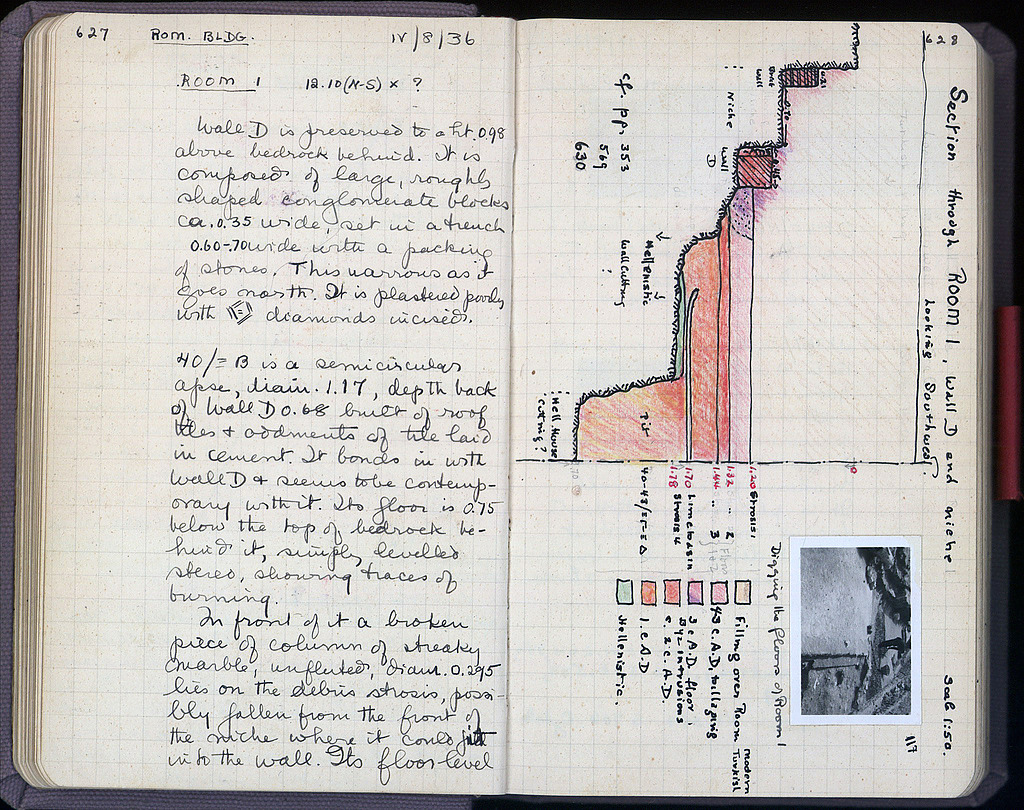 627 ROM. BLDG. IV/8/36
ROOM 1 12.10 (N-S) x ?
Wall D is preserved to a ht. 0.98
above bedrock behind. It is
composed of large, roughly
shaped conglomerate blocks
ca. 0.35 wide, set in a trench
0.60-.70 wide with a packing
of stones. This narrows as it
goes north. It is plastered poorly
with diamonds incised.
40/ΞB is a semicircular
apse, diam. 1.17, depth back
of Wall D 0.68 built of roof
tiles + oddments of tile laid
in cement. It bonds in with
Wall D + seems to be contemp-
orary with it. Its floor is 0.75
below the top of bedrock be-
hind it, simply levelled
stereo, showing traces of
burning.
In front of it a broken
piece of column of streaky
marble, unfluted, diam. 0.295
lies on the debris strosis, possi-
bly fallen from the front of
the niche where it could fit
into the wall. Its floor level
628
Section through ROOM 1, Wall D and niche
Looking Southwest
Scale 1:50.
117
Digging the floors of Room 1
Niche
Wall
D
cf. pp. 353
569
630
Hellenistic
Wall cutting
?
Pit
? Hell. House
cutting?
0
1.20 Strosis 1
1.32 " 2
1.44 " 3
1.70 Lime basin
1.78 Strosis 4
Filling over Room Modern Turkish
4-5 c. A.D. pillaging
3 c. A.D. floor,
3+4 intrusions
c. 2 c. A.D.
1. c. A.D
Hellenistic.